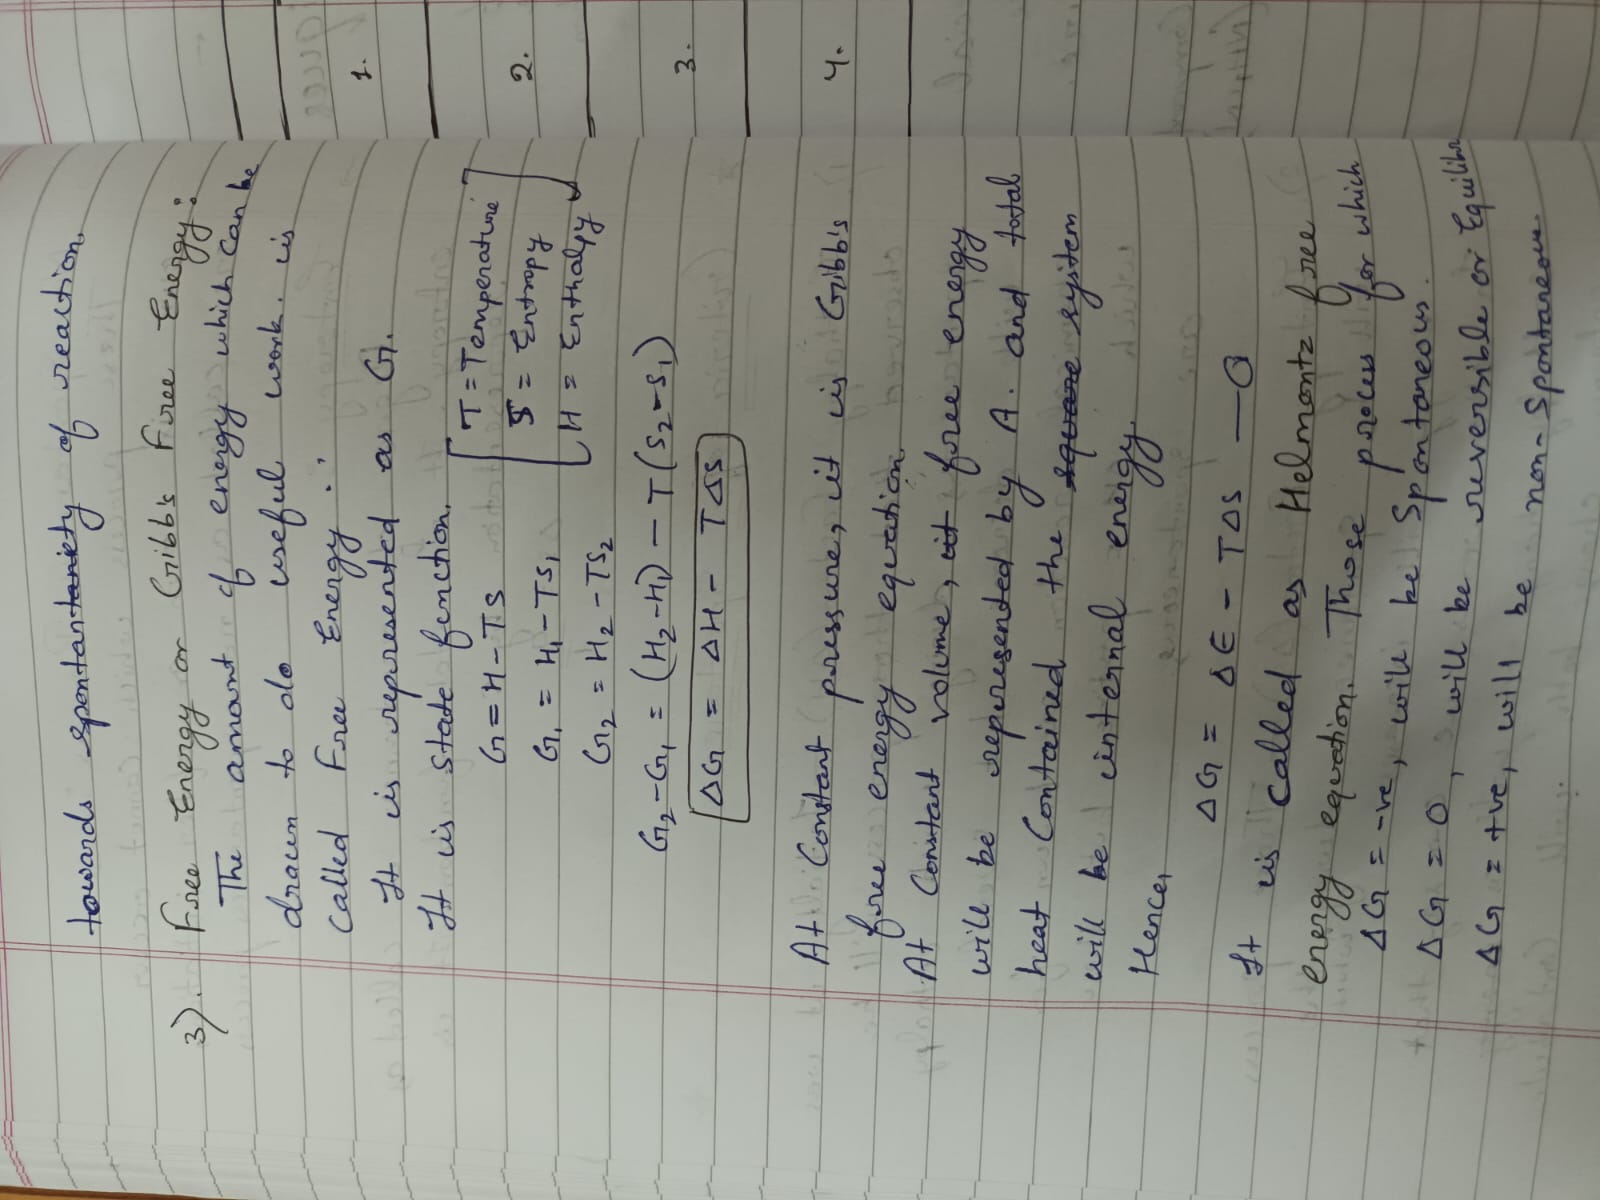 towards spontaniety of reaction.
3). Free Energy or Gibb's Free Energy:
The amount of energy which can be
drawn to do useful work. is
called Free Energy.
It is represented as G.
It is state function.
G = H - TS
[T = Temperature
S = Entropy
H = Enthalpy]
G₁ = H₁ - TS₁
G₂ = H₂ - TS₂
G₂ - G₁ = (H₂ - H₁) - T(S₂ - S₁)
ΔG = ΔH - TΔS
At Constant pressure, it is Gibb's
free energy equation.
At Constant volume, it free energy
will be represented by A. and total
heat Contained the square system
will be internal energy.
Hence,
ΔG = ΔE - TΔS
It is called as Helmontz free
energy equation. Those process for which
ΔG = -ve, will be Spontaneous.
ΔG = 0, will be reversible or Equilibr
ΔG = +ve, will be non-Spontaneous
1.
2.
3.
4.